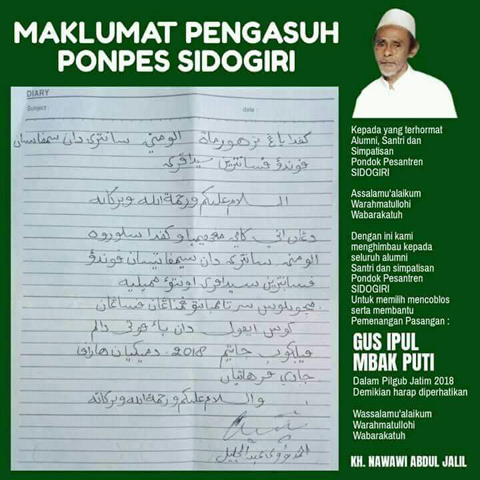 MAKLUMAT PENGASUH
PONPES SIDOGIRI
DIARY
Subject :
date :
الومني سانتري دان
السلام عليكم ورحمة الله وبركاته
كفدا سلوروه
الومني سانتري دان سيمفاتيسان فوندوق
فسانترين اونتوق مميليه
دان دالم
جاتيم 2018. دميكيان هاراف
جادي فرهاتيان
والسلام عليكم ورحمة الله وبركاته
نووي عبد الجليل
Kepada yang terhormat
Alumni, Santri dan
Simpatisan
Pondok Pesantren
SIDOGIRI
Assalamu'alaikum
Warahmatullohi
Wabarakatuh
Dengan ini kami
menghimbau kepada
seluruh alumni
Santri dan simpatisan
Pondok Pesantren
SIDOGIRI
Untuk memilih mencoblos
serta membantu
Pemenangan Pasangan :
GUS IPUL
MBAK PUTI
Dalam Pilgub Jatim 2018
Demikian harap diperhatikan
Wassalamu'alaikum
Warahmatullohi
Wabarakatuh
KH. NAWAWI ABDUL JALIL